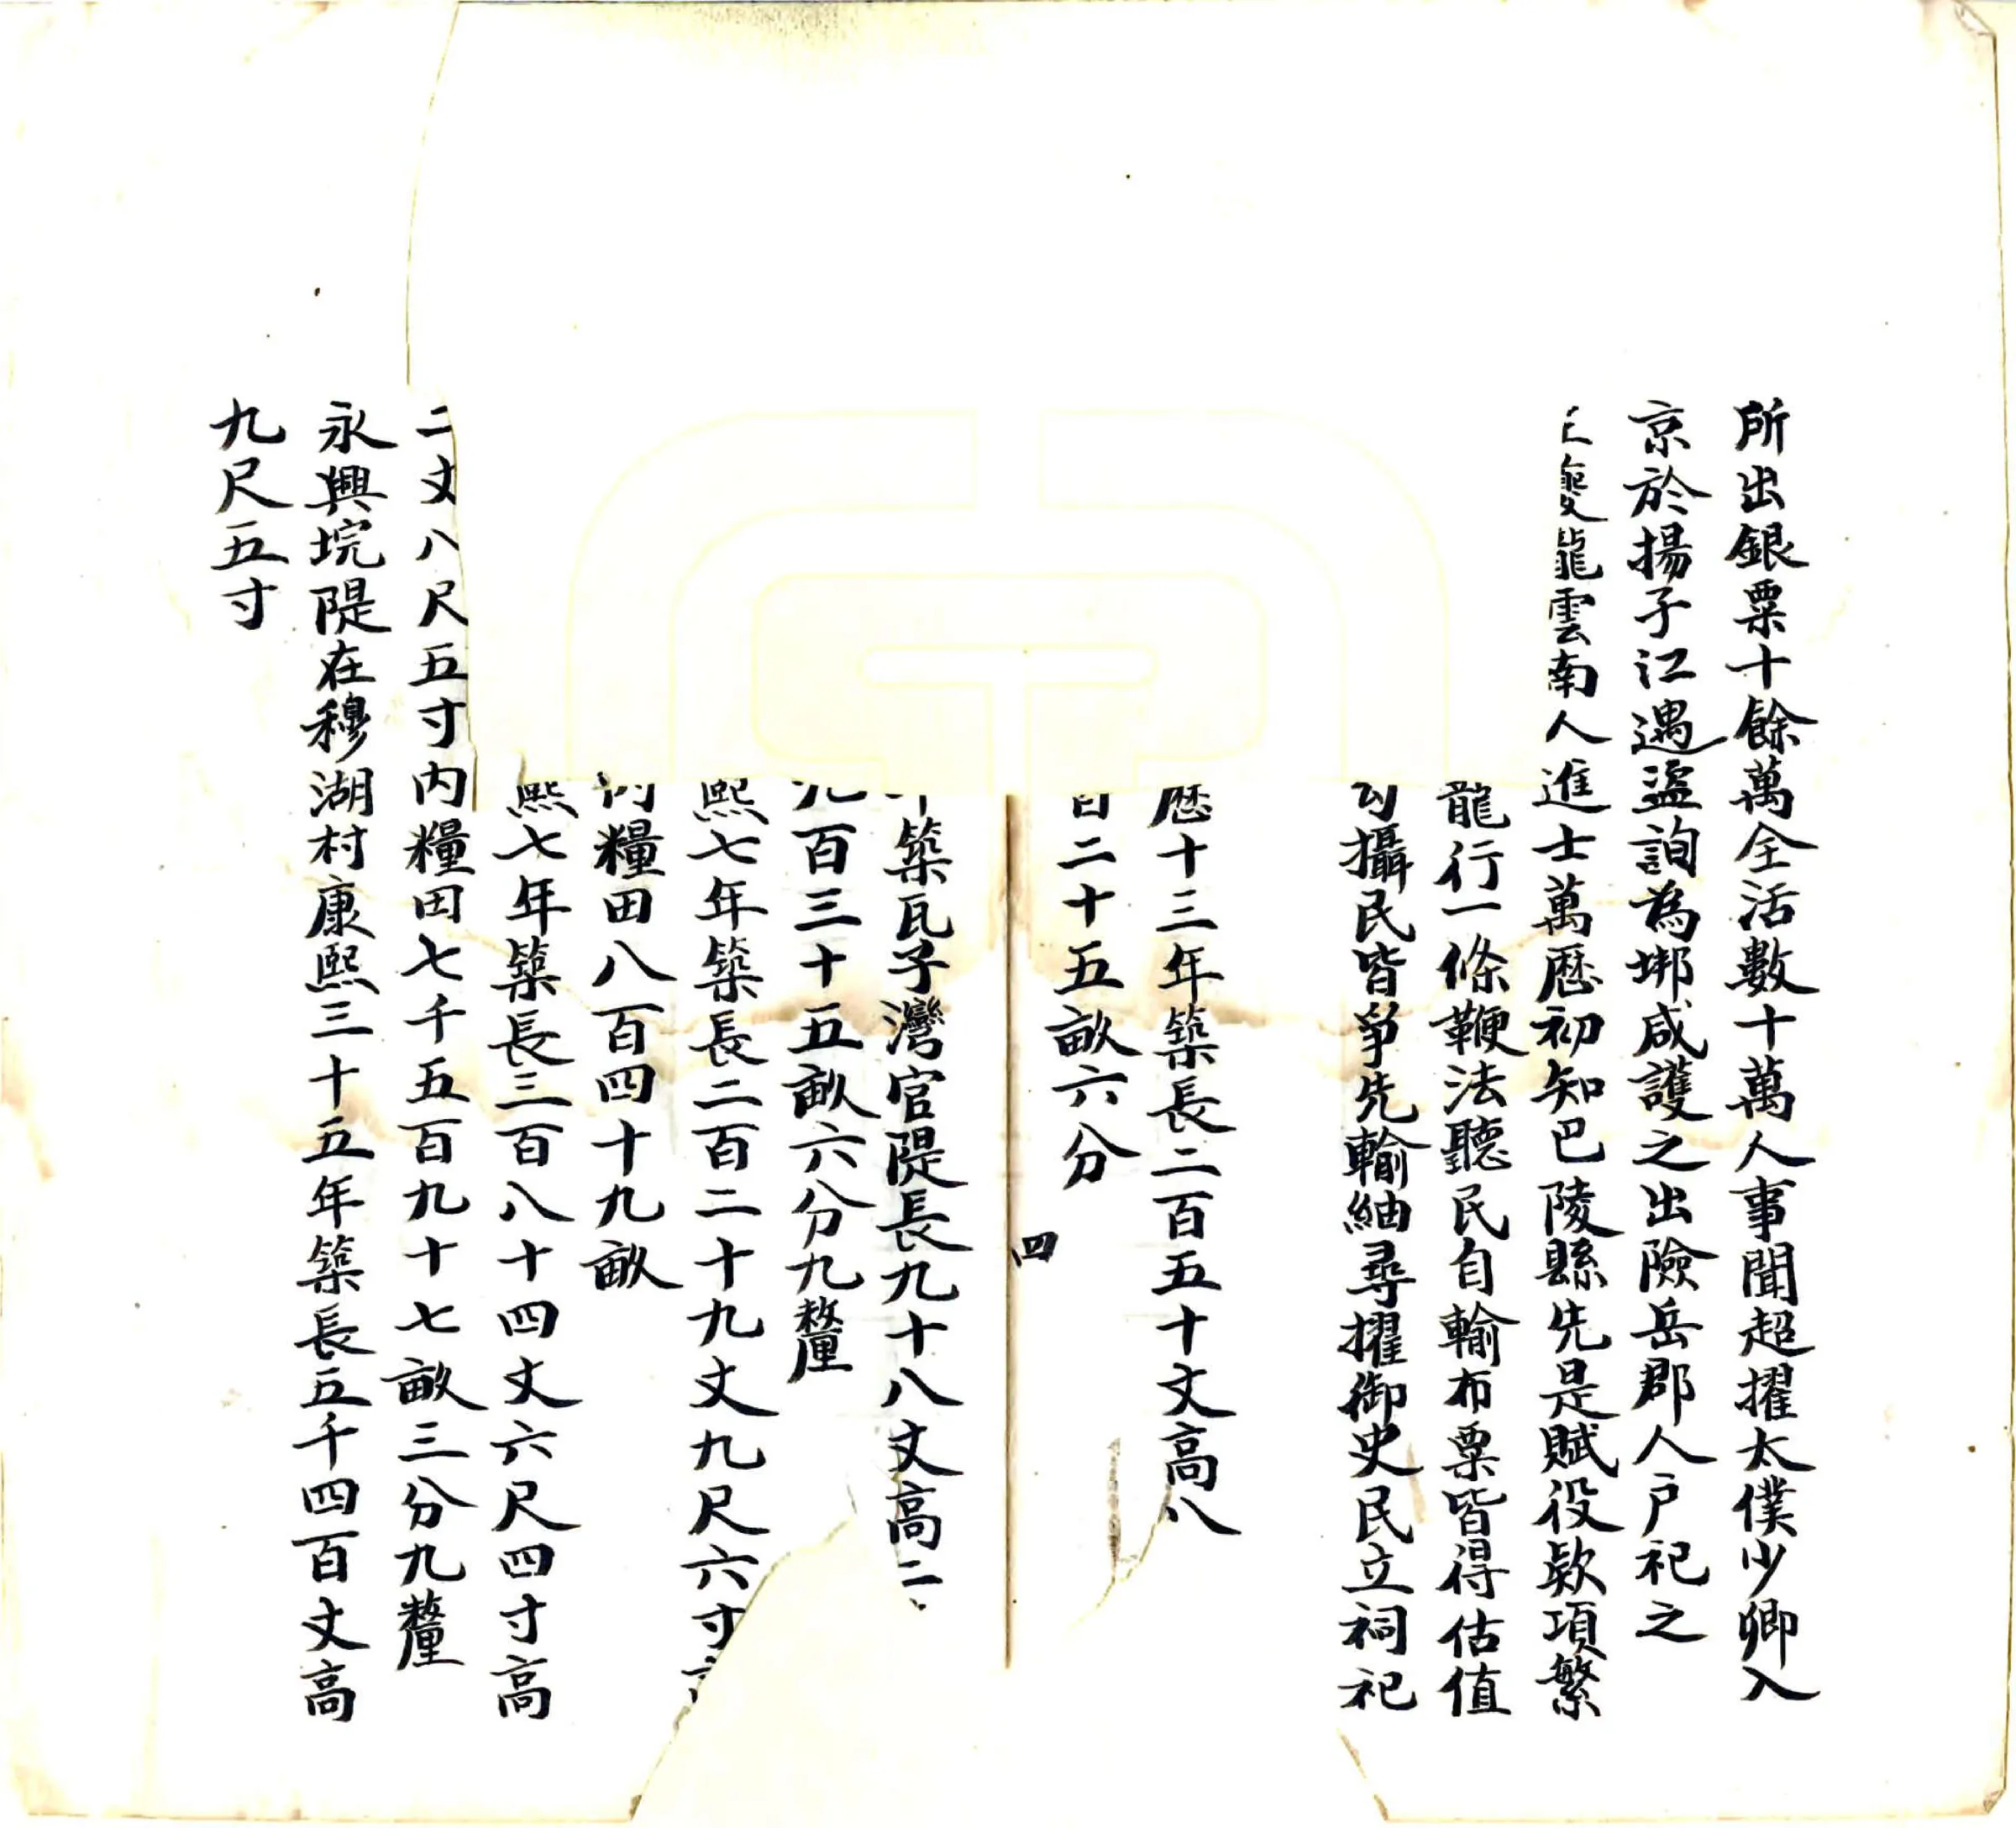 所出銀粟十餘萬全活數十萬人事聞超擢太僕少卿入
京於揚子江遇盜詢為埛咸護之出險岳郡人戶祀之
夔龍雲南人進士萬歷初知巴陵縣先是賦役欵項繁
龍行一條鞭法聽民自輸布粟皆得估值
勾攝民皆爭先輸紬尋擢御史民立祠祀
歷十三年築長二百五十丈高八
百二十五畝六分
四
年築瓦子灣官隄長九十八丈高二
九百三十五畝六分九釐
熙七年築長二百二十九丈九尺六寸
內糧田八百四十九畝
熙七年築長三百八十四丈六尺四寸高
二丈八尺五寸內糧田七千五百九十七畝三分九釐
永興垸隄在穆湖村康熙三十五年築長五千四百丈高
九尺五寸